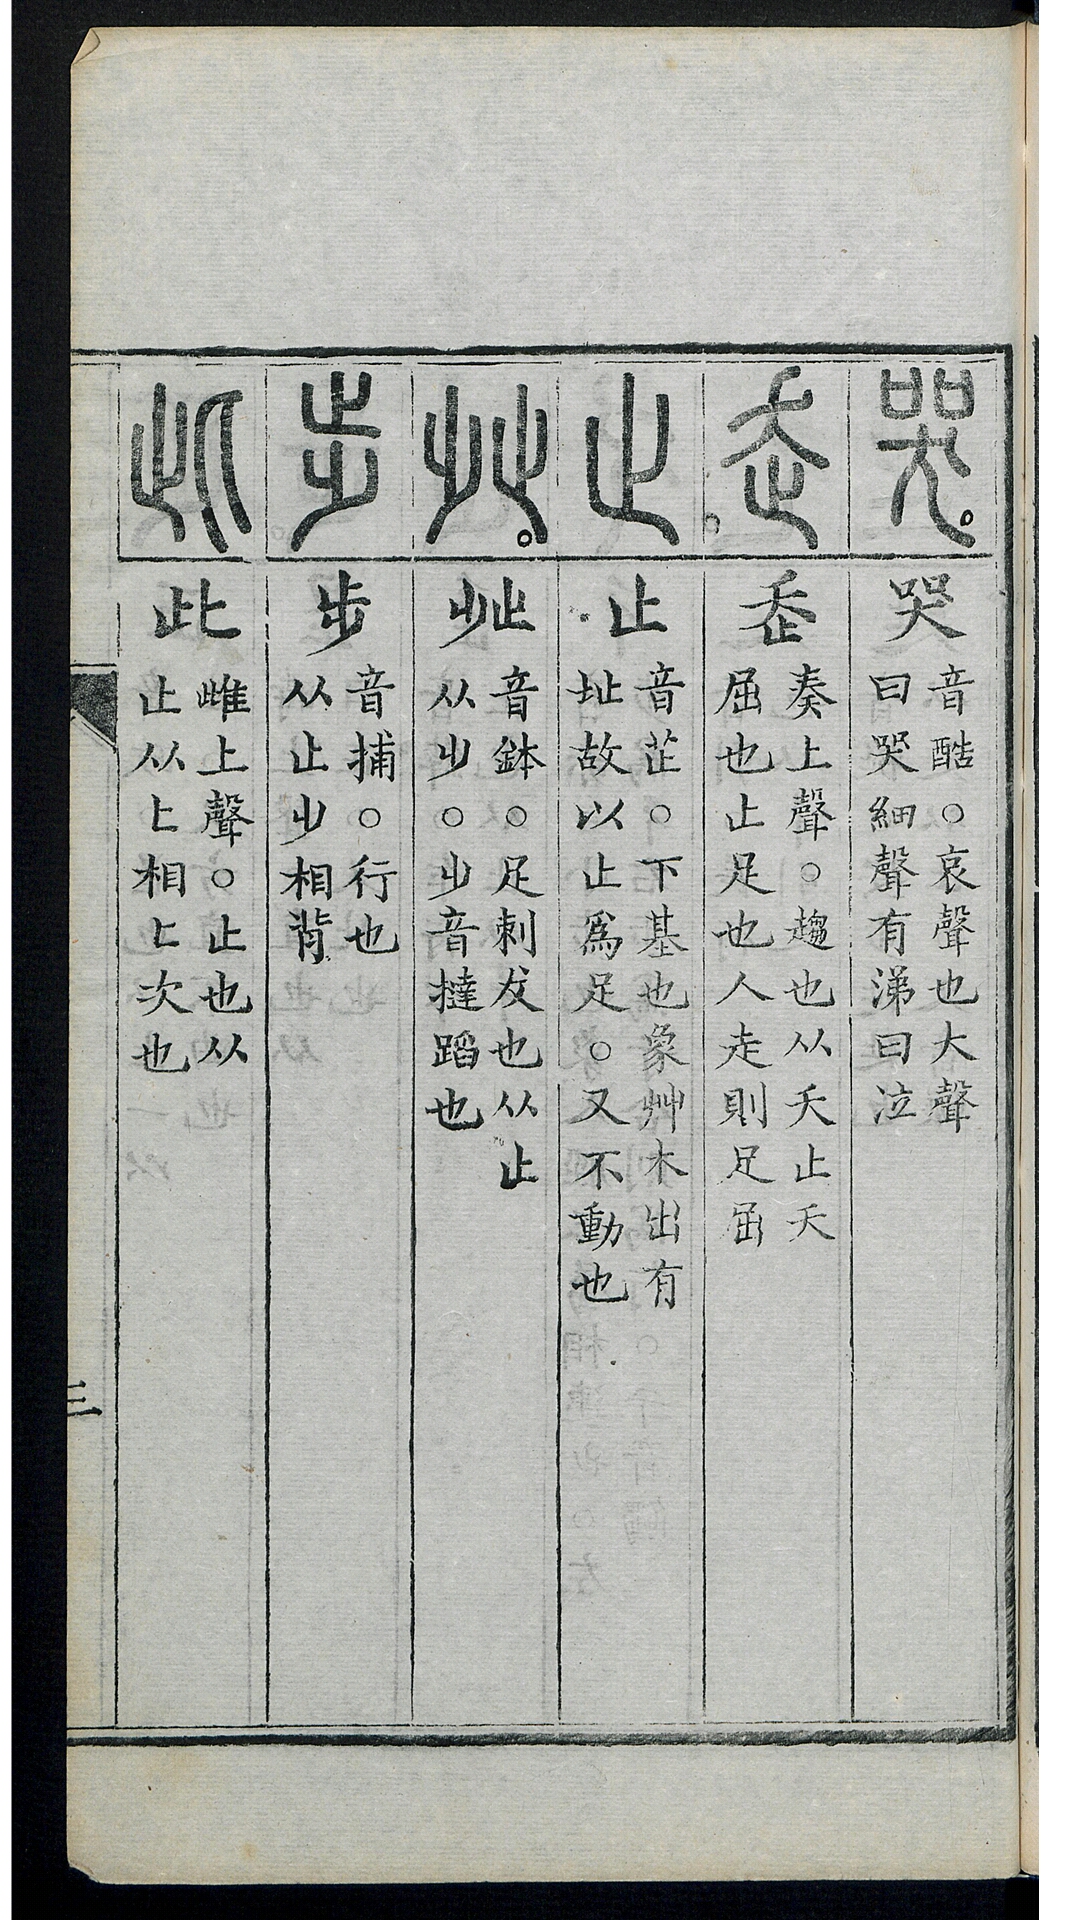 哭
音酷○哀聲也大聲
曰哭細聲有涕曰泣
奏上聲○趨也从夭止夭
屈也止足也人走則足屈
止
音芷○下基也象艸木出有
址故以止爲足○又不動也
癶
音鉢○足刺犮也从止
从𣥂○𣥂音撻蹈也
步
音捕○行也
从止𣥂相背
此
雌上聲○止也从
止从匕相匕次也
三